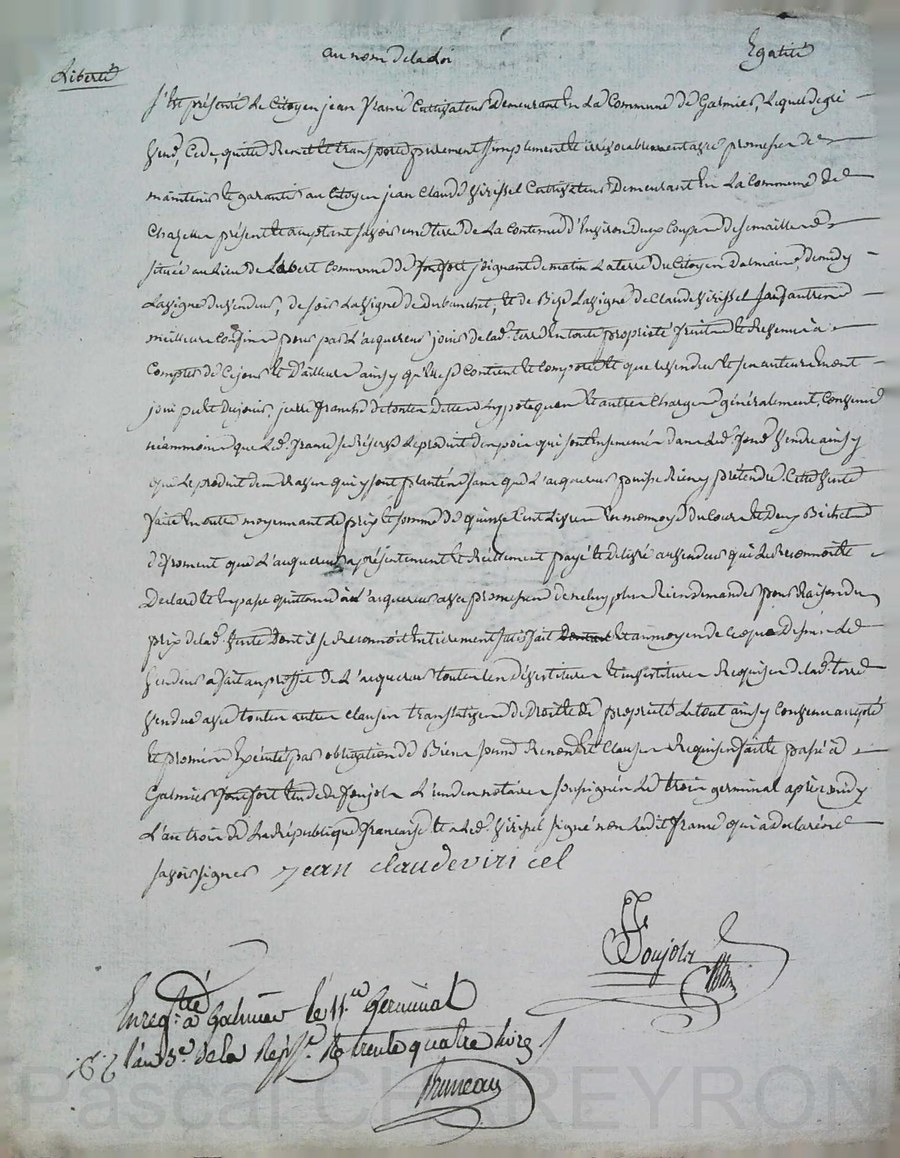 Liberté au nom de la Loi Egalité
s'est présenté le Citoyen jean france Cultivateur demeurant en la Commune de Galmier, lequel de gré
vend, Cede, quitte Remet et transporte purement simplement et irrévocablement avec promesse de
maintenir et garantir au Citoyen jean Claude viricel Cultivateur demeurant en la Commune de
Chazelles présent et acceptant savoir une terre de la Contenue d'Environ deux Coupes de semaille
située au lieu de Commune de fontfort joignant de matin la terre du Citoyen de midy
la vigne du vendeur, de soir la vigne de et de Bize la vigne de Claude viricel sauf autres
meilleurs Confins pour par l'acquereur jouir de lad. terre en toute propriété fruits et Revenus à
Compter de Ce jour et d'ailleurs ainsy qu'elle se Contient et Comporte et que le vendeur et ses auteurs en ont
joui pu et du jouir, franche de toutes dettes hypoteques et autres Charges généralement, Convenu
néammoins que led. france se Réserve le produit des pois qui sont Ensemencés dans led. fond vendu ainsy
que le produit des Raves qui y sont plantées sans que l'acquereur puisse Rien y prétendre. Cette vente
faite En outre moyennant le prix et somme de quinze Cent Livres En monnoye du Cours et deux Bichets
de froment que l'acquereur a présentement et Réellement payé et délivré au vendeur qui le Reconnoit le
Declare et En passe quittance à l'acquereur avec promesse de ne luy plus Rien demander pour Raison du
prix de lad. vente dont il se Reconnoit Entierement satisfait et au moyen de Ce que Dessus led.
vendeur a fait au proffit de l'acquereur toutes les dévestitures et investitures Requises de lad. terre
vendue avec toutes autres Clauses translatives de Droit et de propriété Le tout ainsy Convenu accepté
et promis Exécuter par obligation de Biens soumis Renonce et Clauses Requises fait et passé à
Galmier fontfort Etude de foujols l'un des notaires soussignés le trois germinal après midy
l'an trois de la République française et a led. viricel signé non ledit france qui a déclaré ne
savoir signer jean claude viricel
foujols
Enreg.tré à Galmier le 11.e Germinal
l'an 3.e de la Rep.e R trente quatre livres
Bruneau
Pascal CHAREYRON